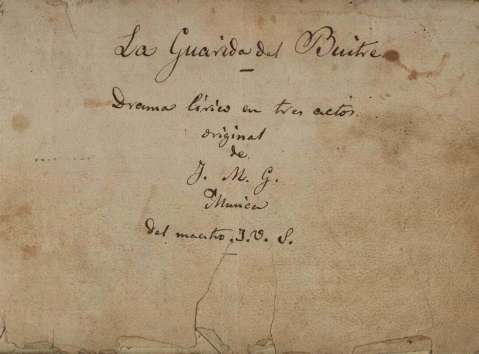 La Guarida del Buitre
Drama lírico en tres actos
original
de
J. M. G.
Musica
del maestro J. V. S.